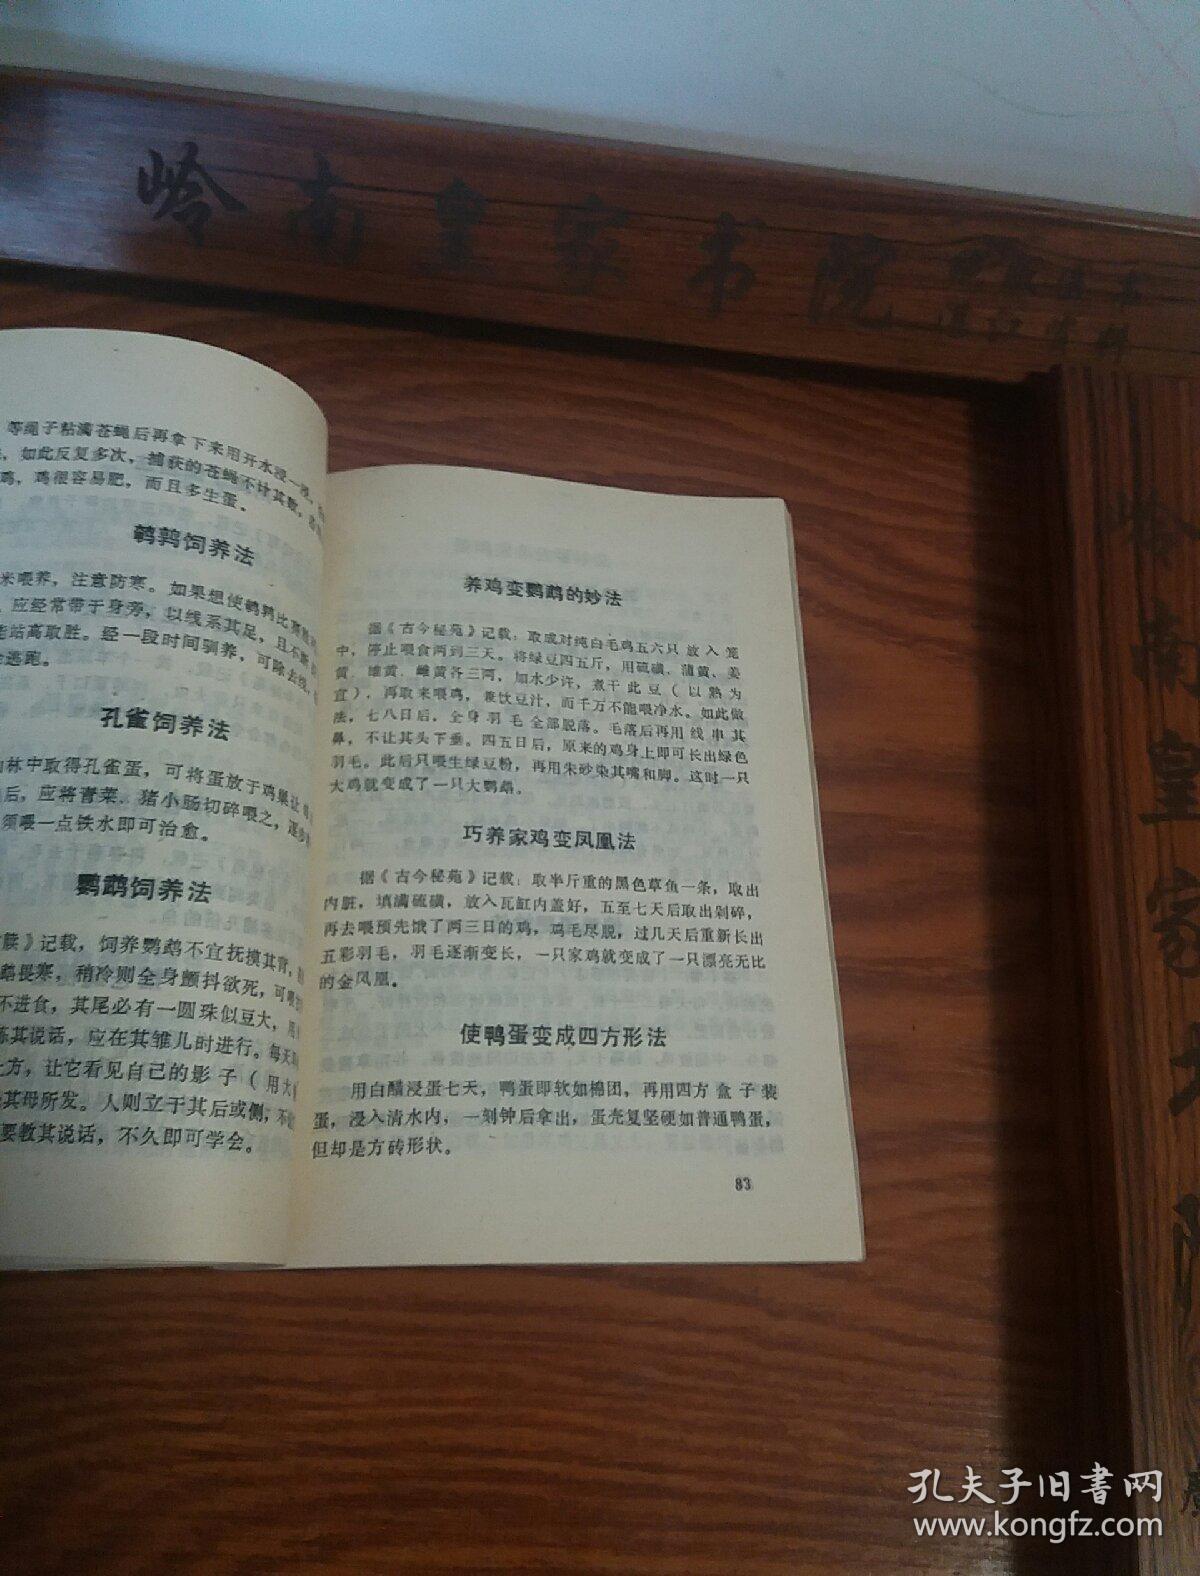 岭南皇家书院
等绳子粘满苍蝇后再拿下来用开水浸一
如此反复多次，捕获的苍蝇不计其数，
鸡，鸡很容易肥，而且多生蛋。
鹌鹑饲养法
米喂养，注意防寒。如果想使鹌鹑比
应经常带于身旁，以线系其足，且不断
能站高取胜。经一段时间驯养，可除去线，
逃跑。
孔雀饲养法
山林中取得孔雀蛋，可将蛋放于鸡巢让
后，应将青菜、猪小肠切碎喂之，逐步
须喂一点铁水即可治愈。
鹦鹉饲养法
牍》记载，饲养鹦鹉不宜抚摸其背，
鹉畏寒，稍冷则全身颤抖欲死，可喂
不进食，其尾必有一圆珠似豆大，用
练其说话，应在其雏儿时进行。每天
上方，让它看见自己的影子（用大
其母所发。人则立于其后或侧，不
要教其说话，不久即可学会。
养鸡变鹦鹉的妙法
据《古今秘苑》记载：取成对纯白毛鸡五六只放入笼
中，停止喂食两到三天。将绿豆四五斤，用硫磺、蒲黄、姜
黄、雄黄、雌黄各三两，加水少许，煮干此豆（以熟为
宜），再取来喂鸡，兼饮豆汁，而千万不能喂净水。如此做
法，七八日后，全身羽毛全部脱落。毛落后再用线串其
鼻，不让其头下垂。四五日后，原来的鸡身上即可长出绿色
羽毛。此后只喂生绿豆粉，再用朱砂染其嘴和脚。这时一只
大鸡就变成了一只大鹦鹉。
巧养家鸡变凤凰法
据《古今秘苑》记载：取半斤重的黑色草鱼一条，取出
内脏，填满硫磺，放入瓦缸内盖好，五至七天后取出剁碎，
再去喂预先饿了两三日的鸡，鸡毛尽脱，过几天后重新长出
五彩羽毛，羽毛逐渐变长，一只家鸡就变成了一只漂亮无比
的金凤凰。
使鸭蛋变成四方形法
用白醋浸蛋七天，鸭蛋即软如棉团，再用四方盒子装
蛋，浸入清水内，一刻钟后拿出，蛋壳复坚硬如普通鸭蛋，
但却是方砖形状。
83
岭南皇家书院
孔夫子旧书网
www.kongfz.com